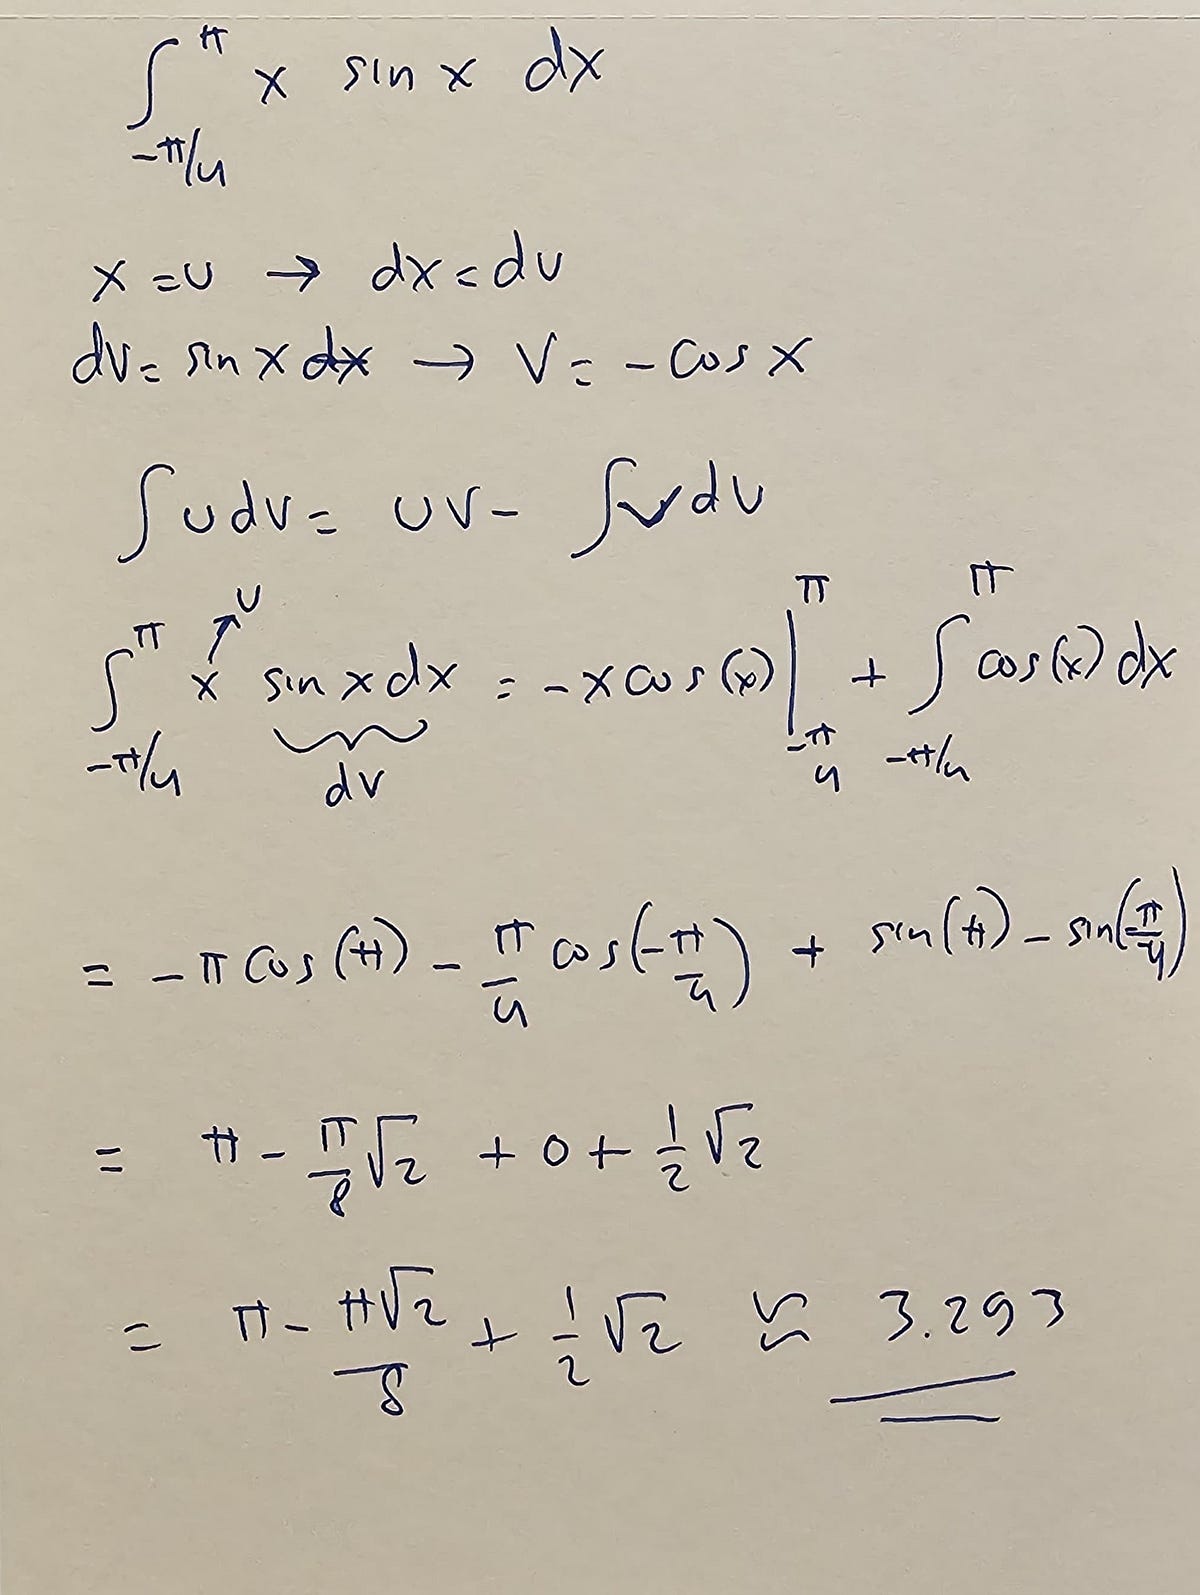 ∫_{-π/4}^{π} x sin x dx
x = u → dx = du
dv = sin x dx → v = -cos x
∫ u dv = uv - ∫ v du
∫_{-π/4}^{π} x↗u sin x dx = -x cos(x) |_{-π/4}^{π} + ∫_{-π/4}^{π} cos(x) dx
dv
= -π cos(π) - π/4 cos(-π/4) + sin(π) - sin(-π/4)
= π - π/8 √2 + 0 + 1/2 √2
= π - π√2/8 + 1/2 √2 ≈ 3.293